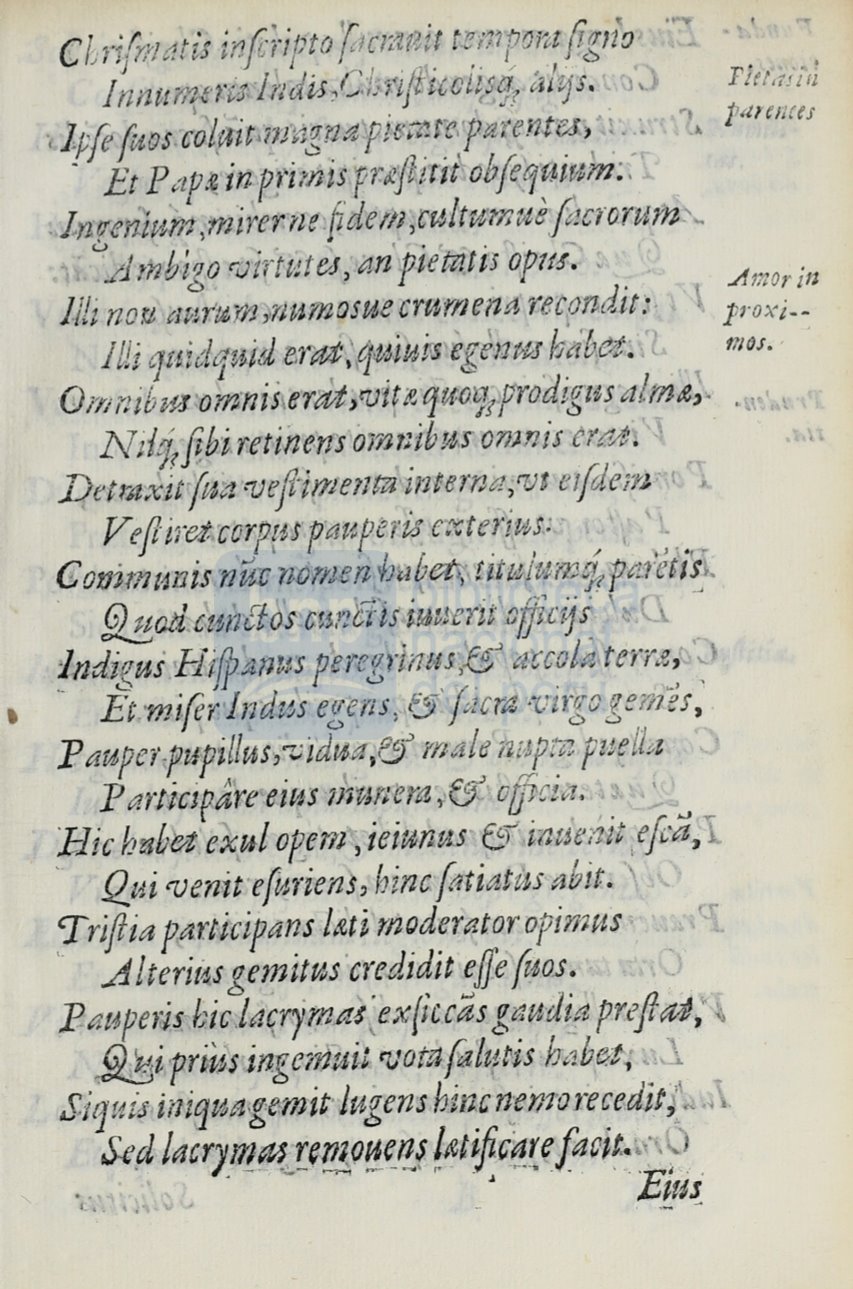 Chriſmatis inſcripto ſacrauit tempora ſigno
Innumeris Indis, Chriſticolisq́; alijs.
Pietas in
parentes
Ipſe ſuos coluit magna pietate parentes,
Et Papæ in primis præſtitit obſequium.
Ingenium, mirer ne fidem, cultumuè ſacrorum
Ambigo virtutes, an pietatis opus.
Amor in
proxi--
mos.
Illi non aurum, numosue crumena recondit:
Illi quidquid erat, quiuis egenus habet.
Omnibus omnis erat, vitæ quoq; prodigus almæ,
Nilq́; ſibi retinens omnibus omnis erat.
Detraxit ſua veſtimenta interna, vt eiſdem
Veſtiret corpus pauperis exterius.
Communis nũc nomen habet, titulumq́; parẽtis
Quod cunctos cunctis iuuerit officijs
Indigus Hiſpanus peregrinus, & accola terræ,
Et miſer Indus egens, & ſacra virgo gemẽs,
Pauper pupillus, vidua, & male nupta puella
Participâre eius munera, & officia.
Hic habet exul opem, ieiunus & inuenit eſcã,
Qui venit eſuriens, hinc ſatiatus abit.
Triſtia participans læti moderator opimus
Alterius gemitus credidit eſſe ſuos.
Pauperis hic lacrymas exſiccãs gaudia preſtat,
Qui priùs ingemuit vota ſalutis habet,
Siquis iniqua gemit lugens hinc nemo recedit,
Sed lacrymas remouens lætificare facit.
Eius